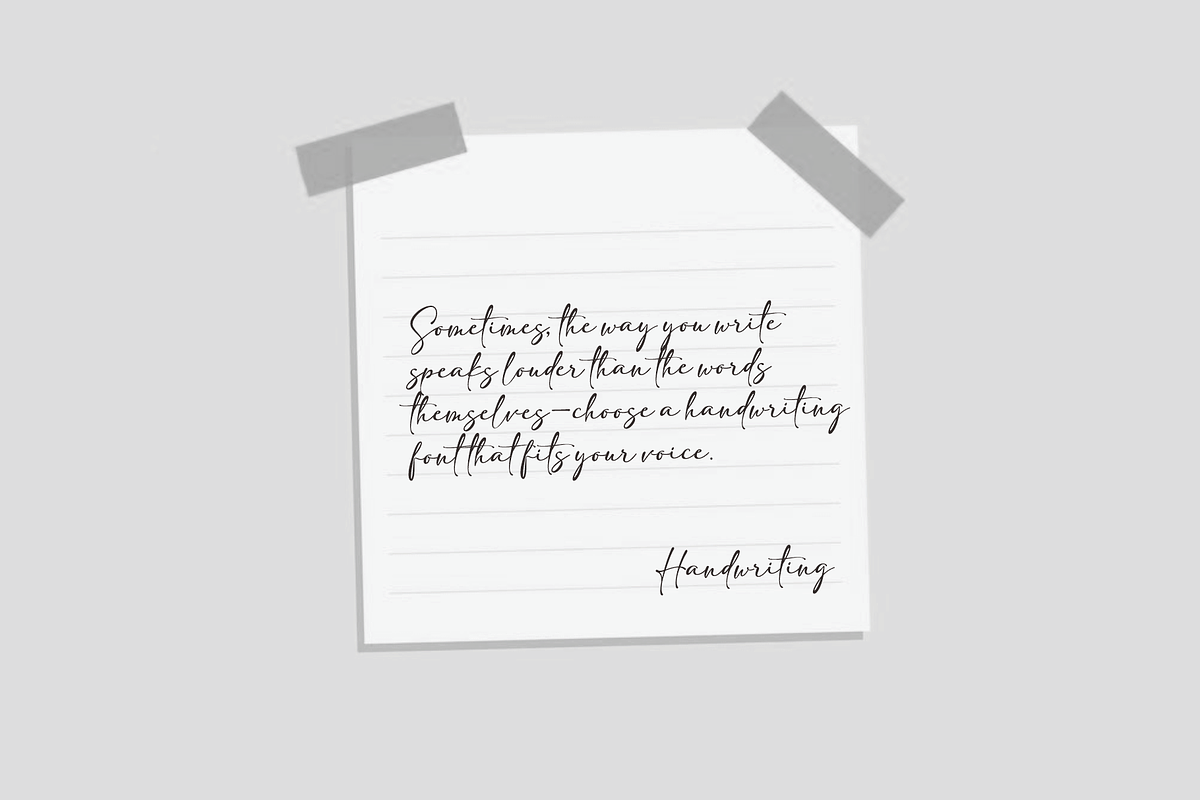 Sometimes, the way you write
speaks louder than the words
themselves—choose a handwriting
font that fits your voice.
Handwriting